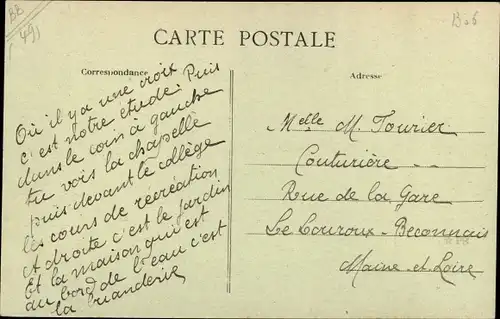 BB
(491
B06
CARTE POSTALE
Correspondance
Adresse
Où il y a une croix
c'est notre étude. Puis
dans le coin à gauche
tu vois la chapelle
puis devant le collège
les cours de récréation
A droite c'est le jardin
Et la maison qui est
au bord de l'eau c'est
la buanderie,
Melle M. Tourier
Couturière - -
Rue de la Gare
Le Louroux-Béconnais
Maine-et-Loire